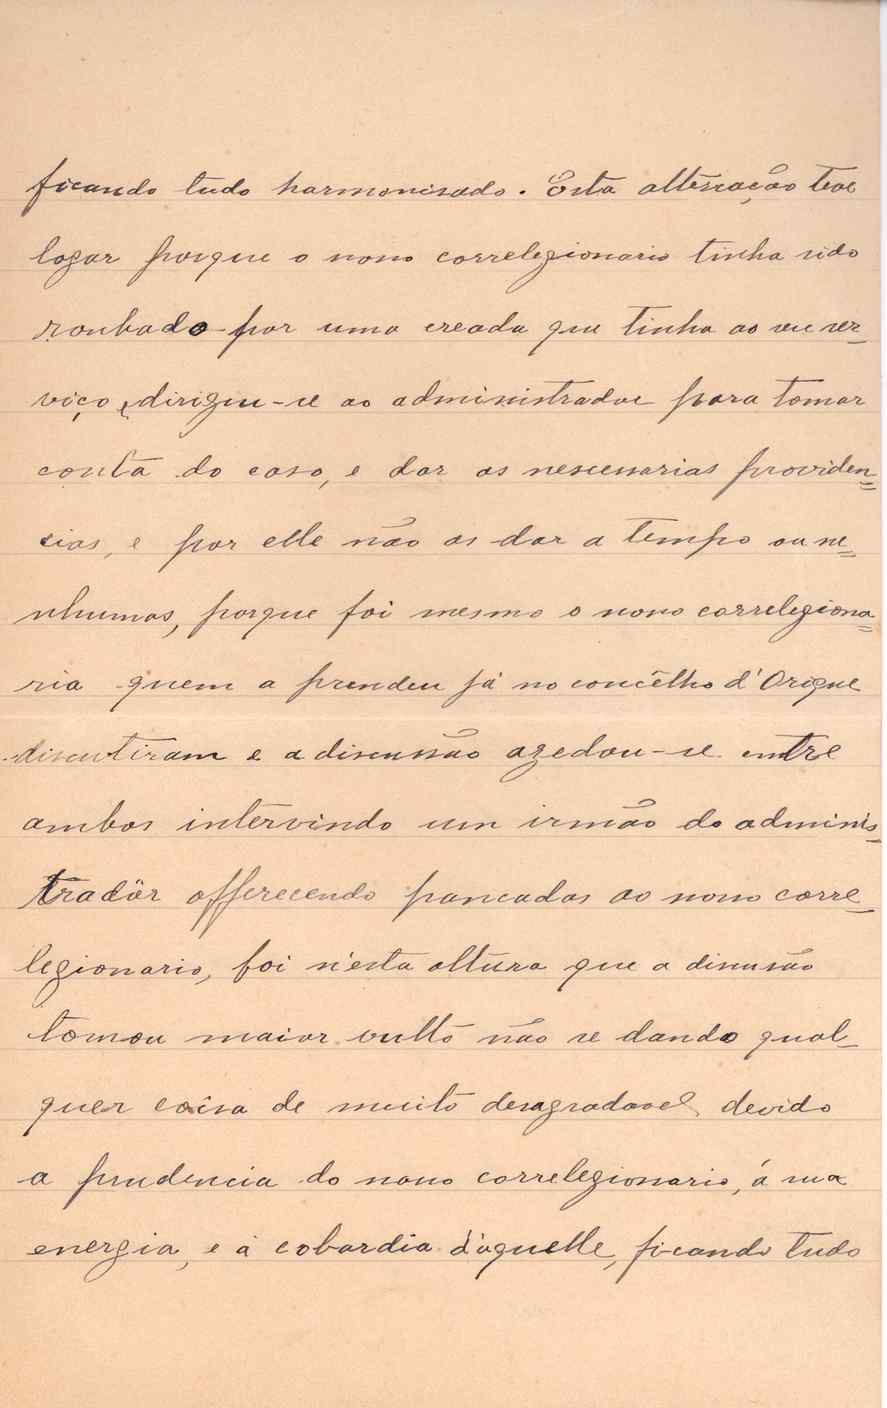 ficando tudo harmonisado. Esta altercação teve
logar porque o nosso correlegionario tinha sido
roubado por uma creada que tinha ao seu ser-
viço, e dirigiu-se ao administrador para tomar
conta do caso, e dar as nescessarias providen=
cias, e por elle não as dar a tempo ou ne=
nhumas, porque foi mesmo o nosso correlegiona=
rio quem a prendeu já no concêlho d'Orique
discutiram e a discussão azedou-se entre
ambos intervindo um irmão do adminis=
tradôr offerecendo pancadas ao nosso corre-
legionario, foi n'esta altura que a discusão
tomou maior vulto não se dando qual-
quer coisa de muito desagradavel devido
a prudencia do nosso correlegionario, á sua
energia, e á cobardia d'aquelle, ficando tudo